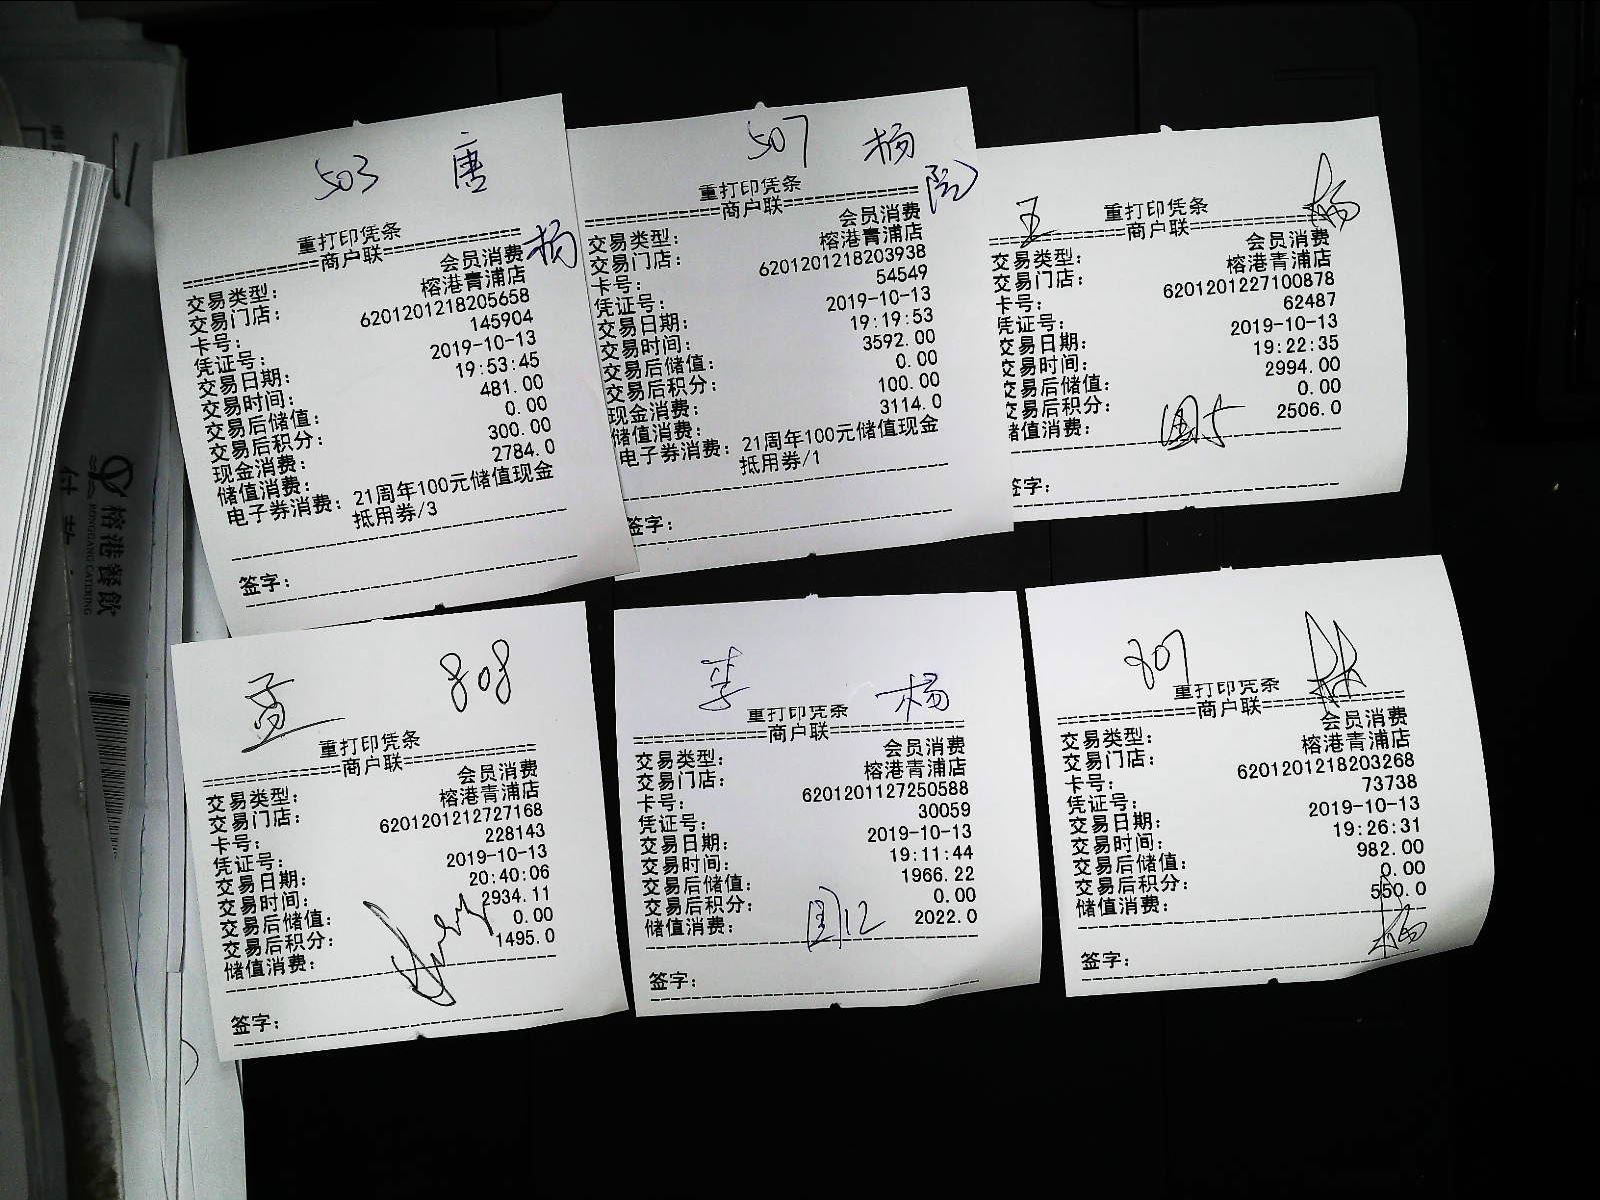 503 唐
重打印凭条
商户联
杨
交易类型: 会员消费
交易门店: 榕港青浦店
卡号: 6201201218205658
凭证号: 145904
交易日期: 2019-10-13
交易时间: 19:53:45
交易后储值: 481.00
交易后积分: 0.00
现金消费: 300.00
储值消费: 2784.0
电子券消费: 21周年100元储值现金
抵用券/3
签字:
507 杨
院
重打印凭条
商户联
交易类型: 会员消费
交易门店: 榕港青浦店
卡号: 6201201218203938
凭证号: 54549
交易日期: 2019-10-13
交易时间: 19:19:53
交易后储值: 3592.00
交易后积分: 0.00
现金消费: 100.00
储值消费: 3114.0
电子券消费: 21周年100元储值现金
抵用券/1
签字:
王 杨
重打印凭条
商户联
交易类型: 会员消费
交易门店: 榕港青浦店
卡号: 6201201227100878
凭证号: 62487
交易日期: 2019-10-13
交易时间: 19:22:35
交易后储值: 2994.00
交易后积分: 0.00
储值消费: 2506.0
国5
签字:
孟 808
重打印凭条
商户联
交易类型: 会员消费
交易门店: 榕港青浦店
卡号: 6201201212727168
凭证号: 228143
交易日期: 2019-10-13
交易时间: 20:40:06
交易后储值: 2934.11
交易后积分: 0.00
储值消费: 1495.0
签字:
李 杨
重打印凭条
商户联
交易类型: 会员消费
交易门店: 榕港青浦店
卡号: 6201201127250588
凭证号: 30059
交易日期: 2019-10-13
交易时间: 19:11:44
交易后储值: 1966.22
交易后积分: 0.00
储值消费: 2022.0
国12
签字:
807 林
重打印凭条
商户联
交易类型: 会员消费
交易门店: 榕港青浦店
卡号: 6201201218203268
凭证号: 73738
交易日期: 2019-10-13
交易时间: 19:26:31
交易后储值: 982.00
交易后积分: 0.00
储值消费: 550.0
杨
签字:
榕港餐飲
RONGGANG CATERING